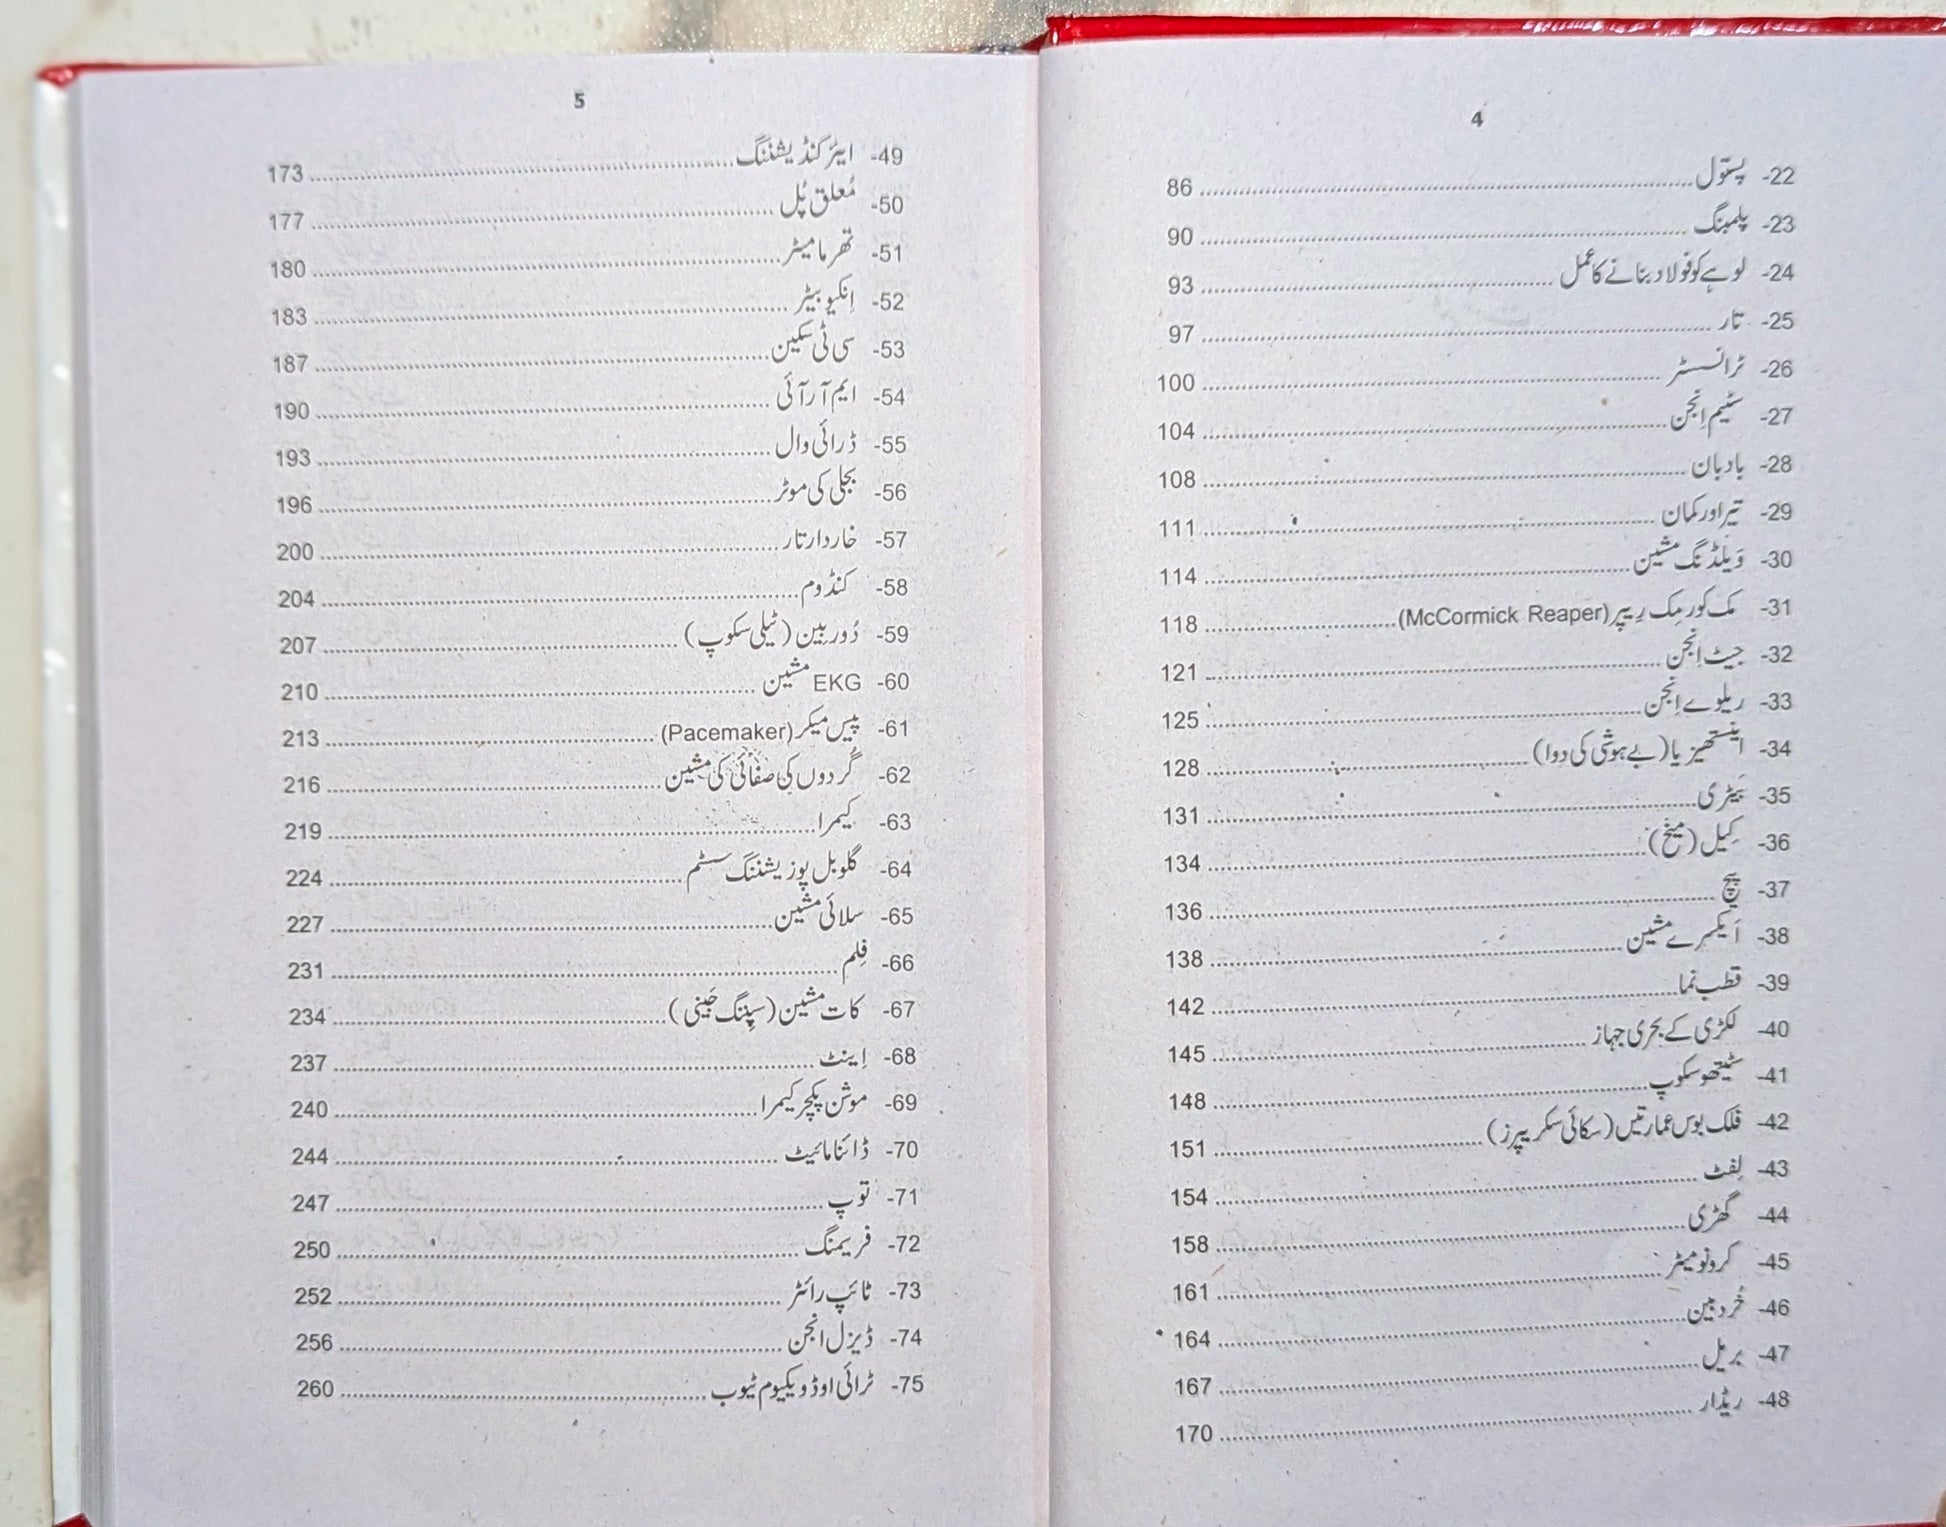 4
22- پستول ........ 86
23- پلمبنگ ........ 90
24- لوہے کو فولاد بنانے کا عمل ........ 93
25- تار ........ 97
26- ٹرانسسٹر ........ 100
27- سٹیم اِنجن ........ 104
28- بادبان ........ 108
29- تیر اور کمان ........ 111
30- وَیلڈنگ مشین ........ 114
31- مک کورمِک رِیپر (McCormick Reaper) ........ 118
32- جیٹ اِنجن ........ 121
33- ریلوے اِنجن ........ 125
34- اینستھیزیا (بے ہوشی کی دوا) ........ 128
35- بَیٹری ........ 131
36- کِیل (میخ) ........ 134
37- پیچ ........ 136
38- اَیکسرے مشین ........ 138
39- قطب نما ........ 142
40- لکڑی کے بحری جہاز ........ 145
41- سٹیتھوسکوپ ........ 148
42- فلک بوس عمارتیں (سکائی سکریپرز) ........ 151
43- لِفٹ ........ 154
44- گھڑی ........ 158
45- کرونومیٹر ........ 161
46- خُردبین ........ 164
47- بریل ........ 167
48- ریڈار ........ 170
5
49- ایئرکنڈیشننگ ........ 173
50- مُعلق پُل ........ 177
51- تھرمامیٹر ........ 180
52- اِنکیوبیٹر ........ 183
53- سی ٹی سکین ........ 187
54- ایم آر آئی ........ 190
55- ڈرائی وال ........ 193
56- بجلی کی موٹر ........ 196
57- خاردار تار ........ 200
58- کنڈوم ........ 204
59- دُوربین (ٹیلی سکوپ) ........ 207
60- EKG مشین ........ 210
61- پیس میکر (Pacemaker) ........ 213
62- گُردوں کی صفائی کی مشین ........ 216
63- کیمرا ........ 219
64- گلوبل پوزیشننگ سسٹم ........ 224
65- سلائی مشین ........ 227
66- فِلم ........ 231
67- کات مشین (سپِننگ جَینی) ........ 234
68- اِینٹ ........ 237
69- موشن پکچر کیمرا ........ 240
70- ڈائنامائیٹ ........ 244
71- توپ ........ 247
72- فریمنگ ........ 250
73- ٹائپ رائٹر ........ 252
74- ڈیزل انجن ........ 256
75- ٹرائی اوڈ ویکیوم ٹیوب ........ 260